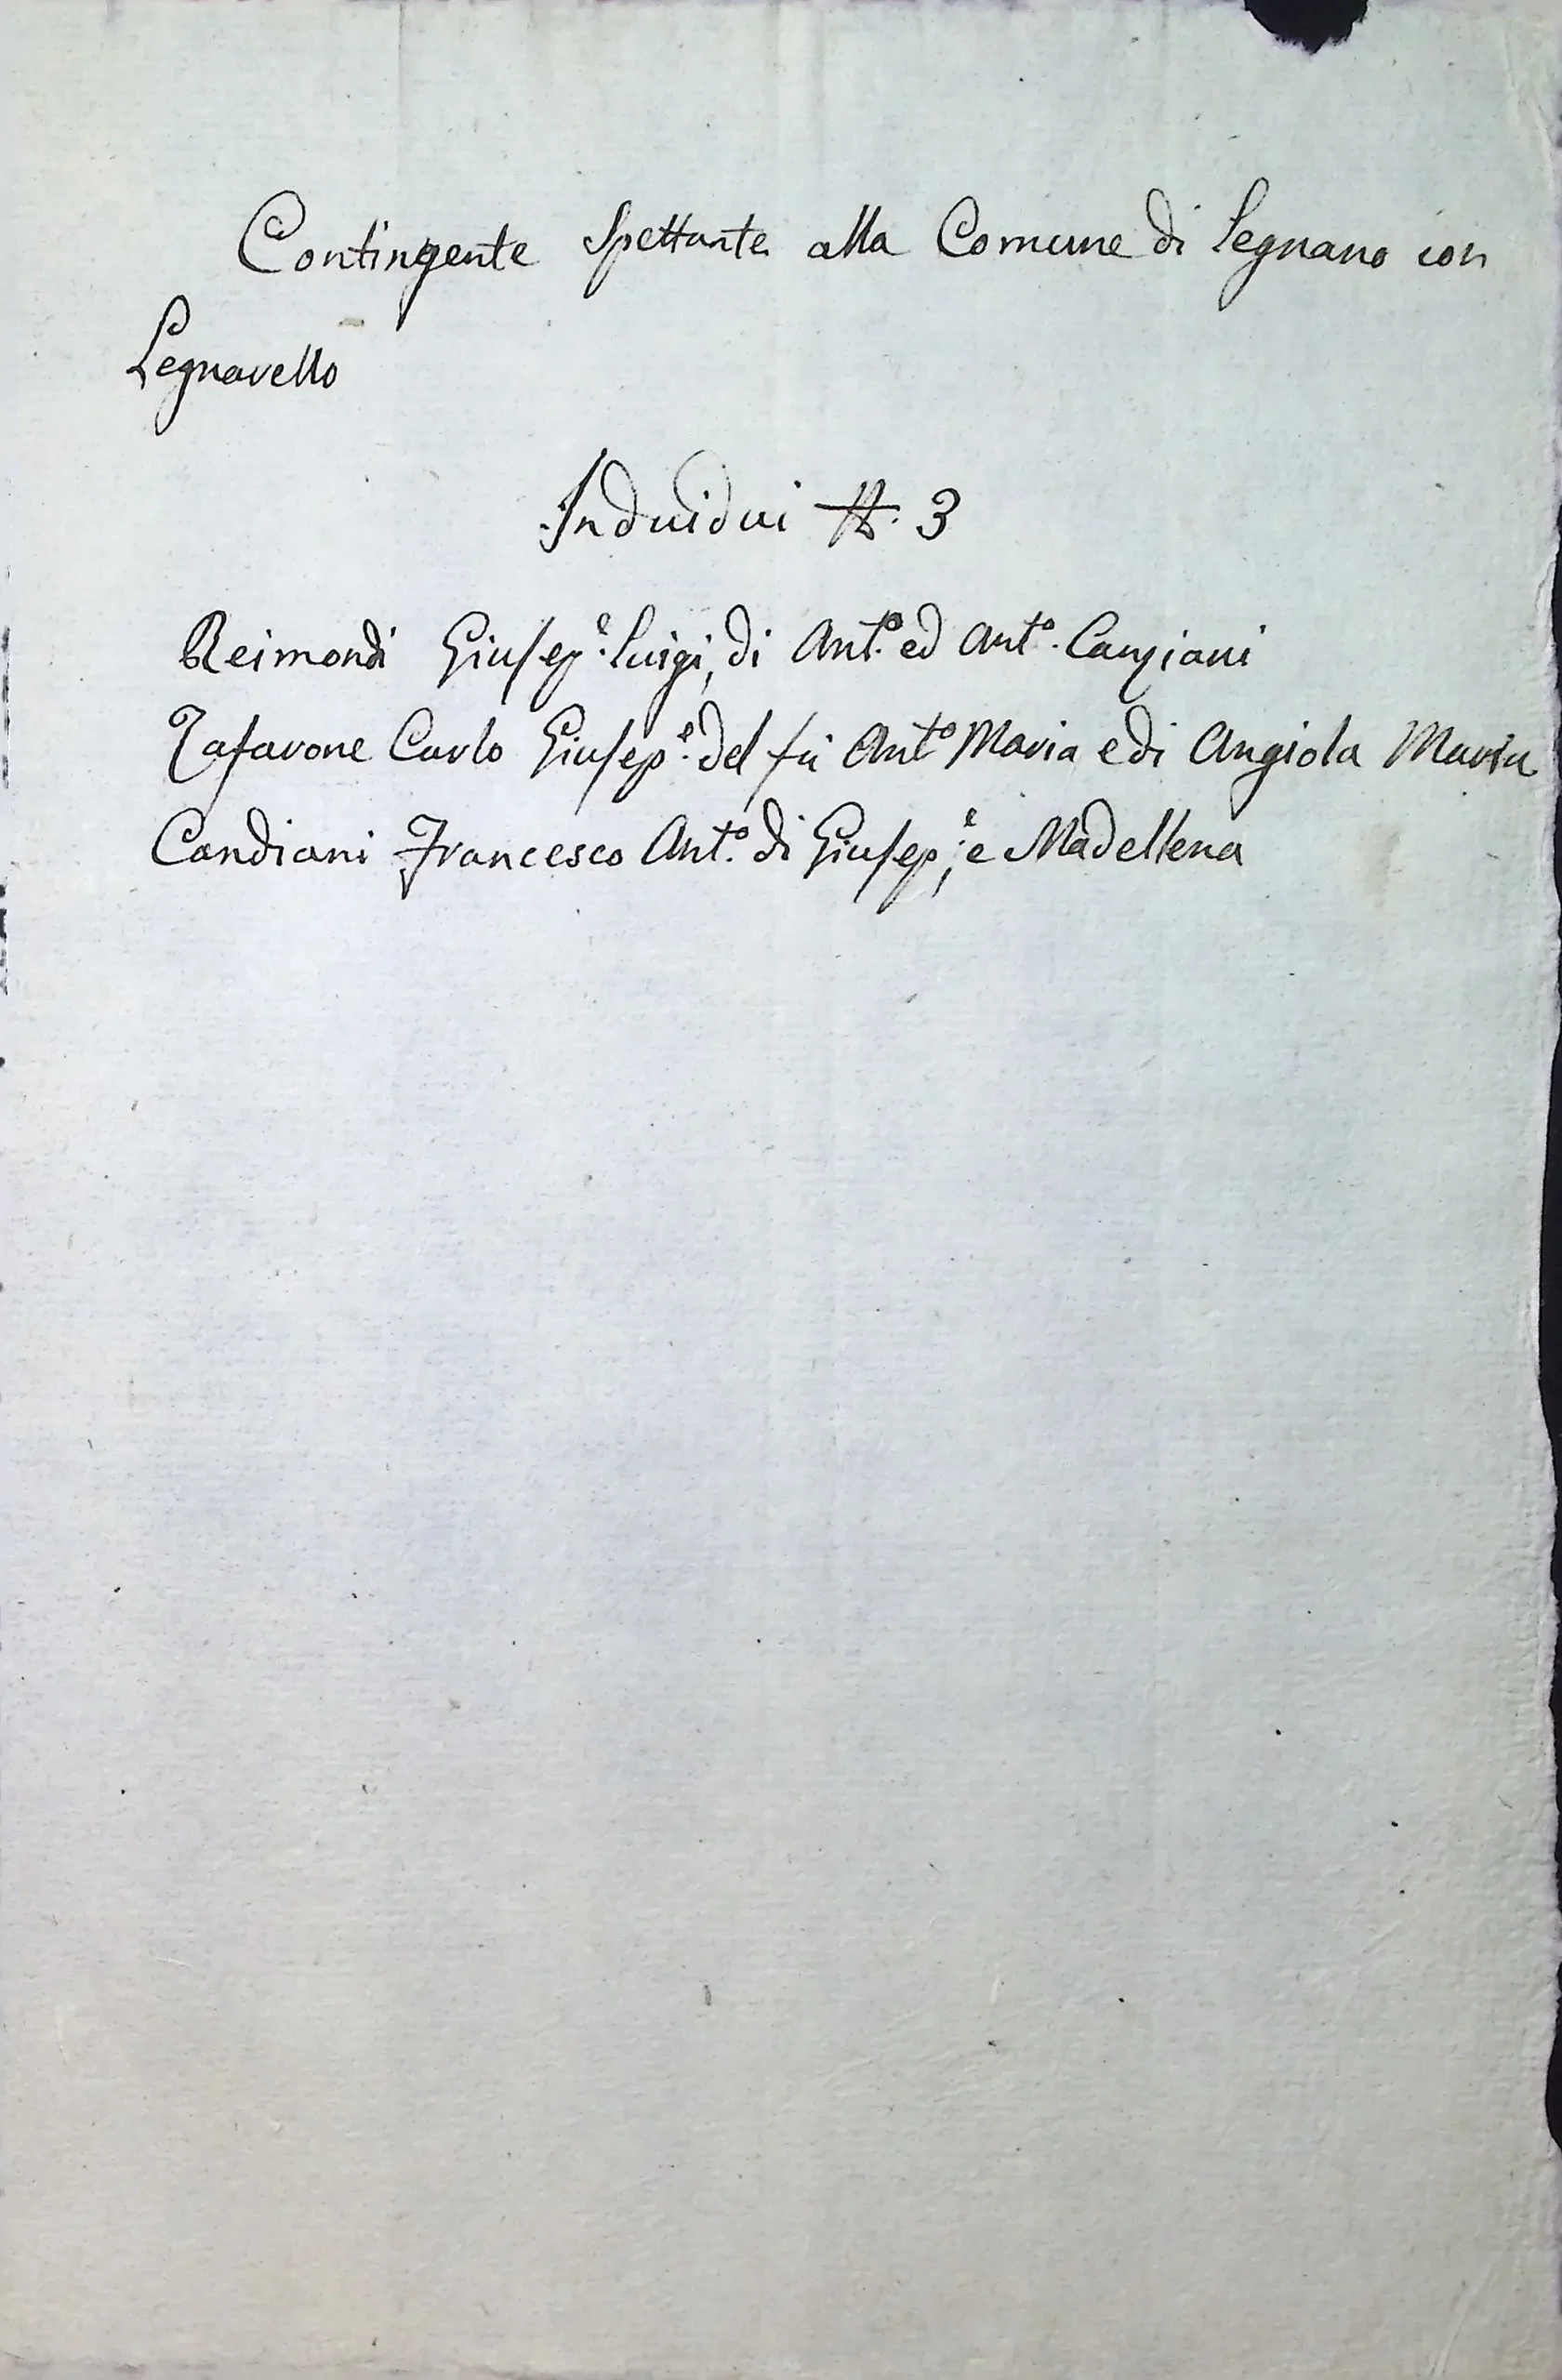 Contingente Spettante alla Comune di Legnano con
Legnarello
Individui N. 3
Reimondi Giusep.e Luigi, di Ant.o ed Ant.o Canziani
Tafarone Carlo Giusep.e del fù Ant.o Maria e di Angiola Maria
Candiani Francesco Ant.o di Giusep.e, e Madellena